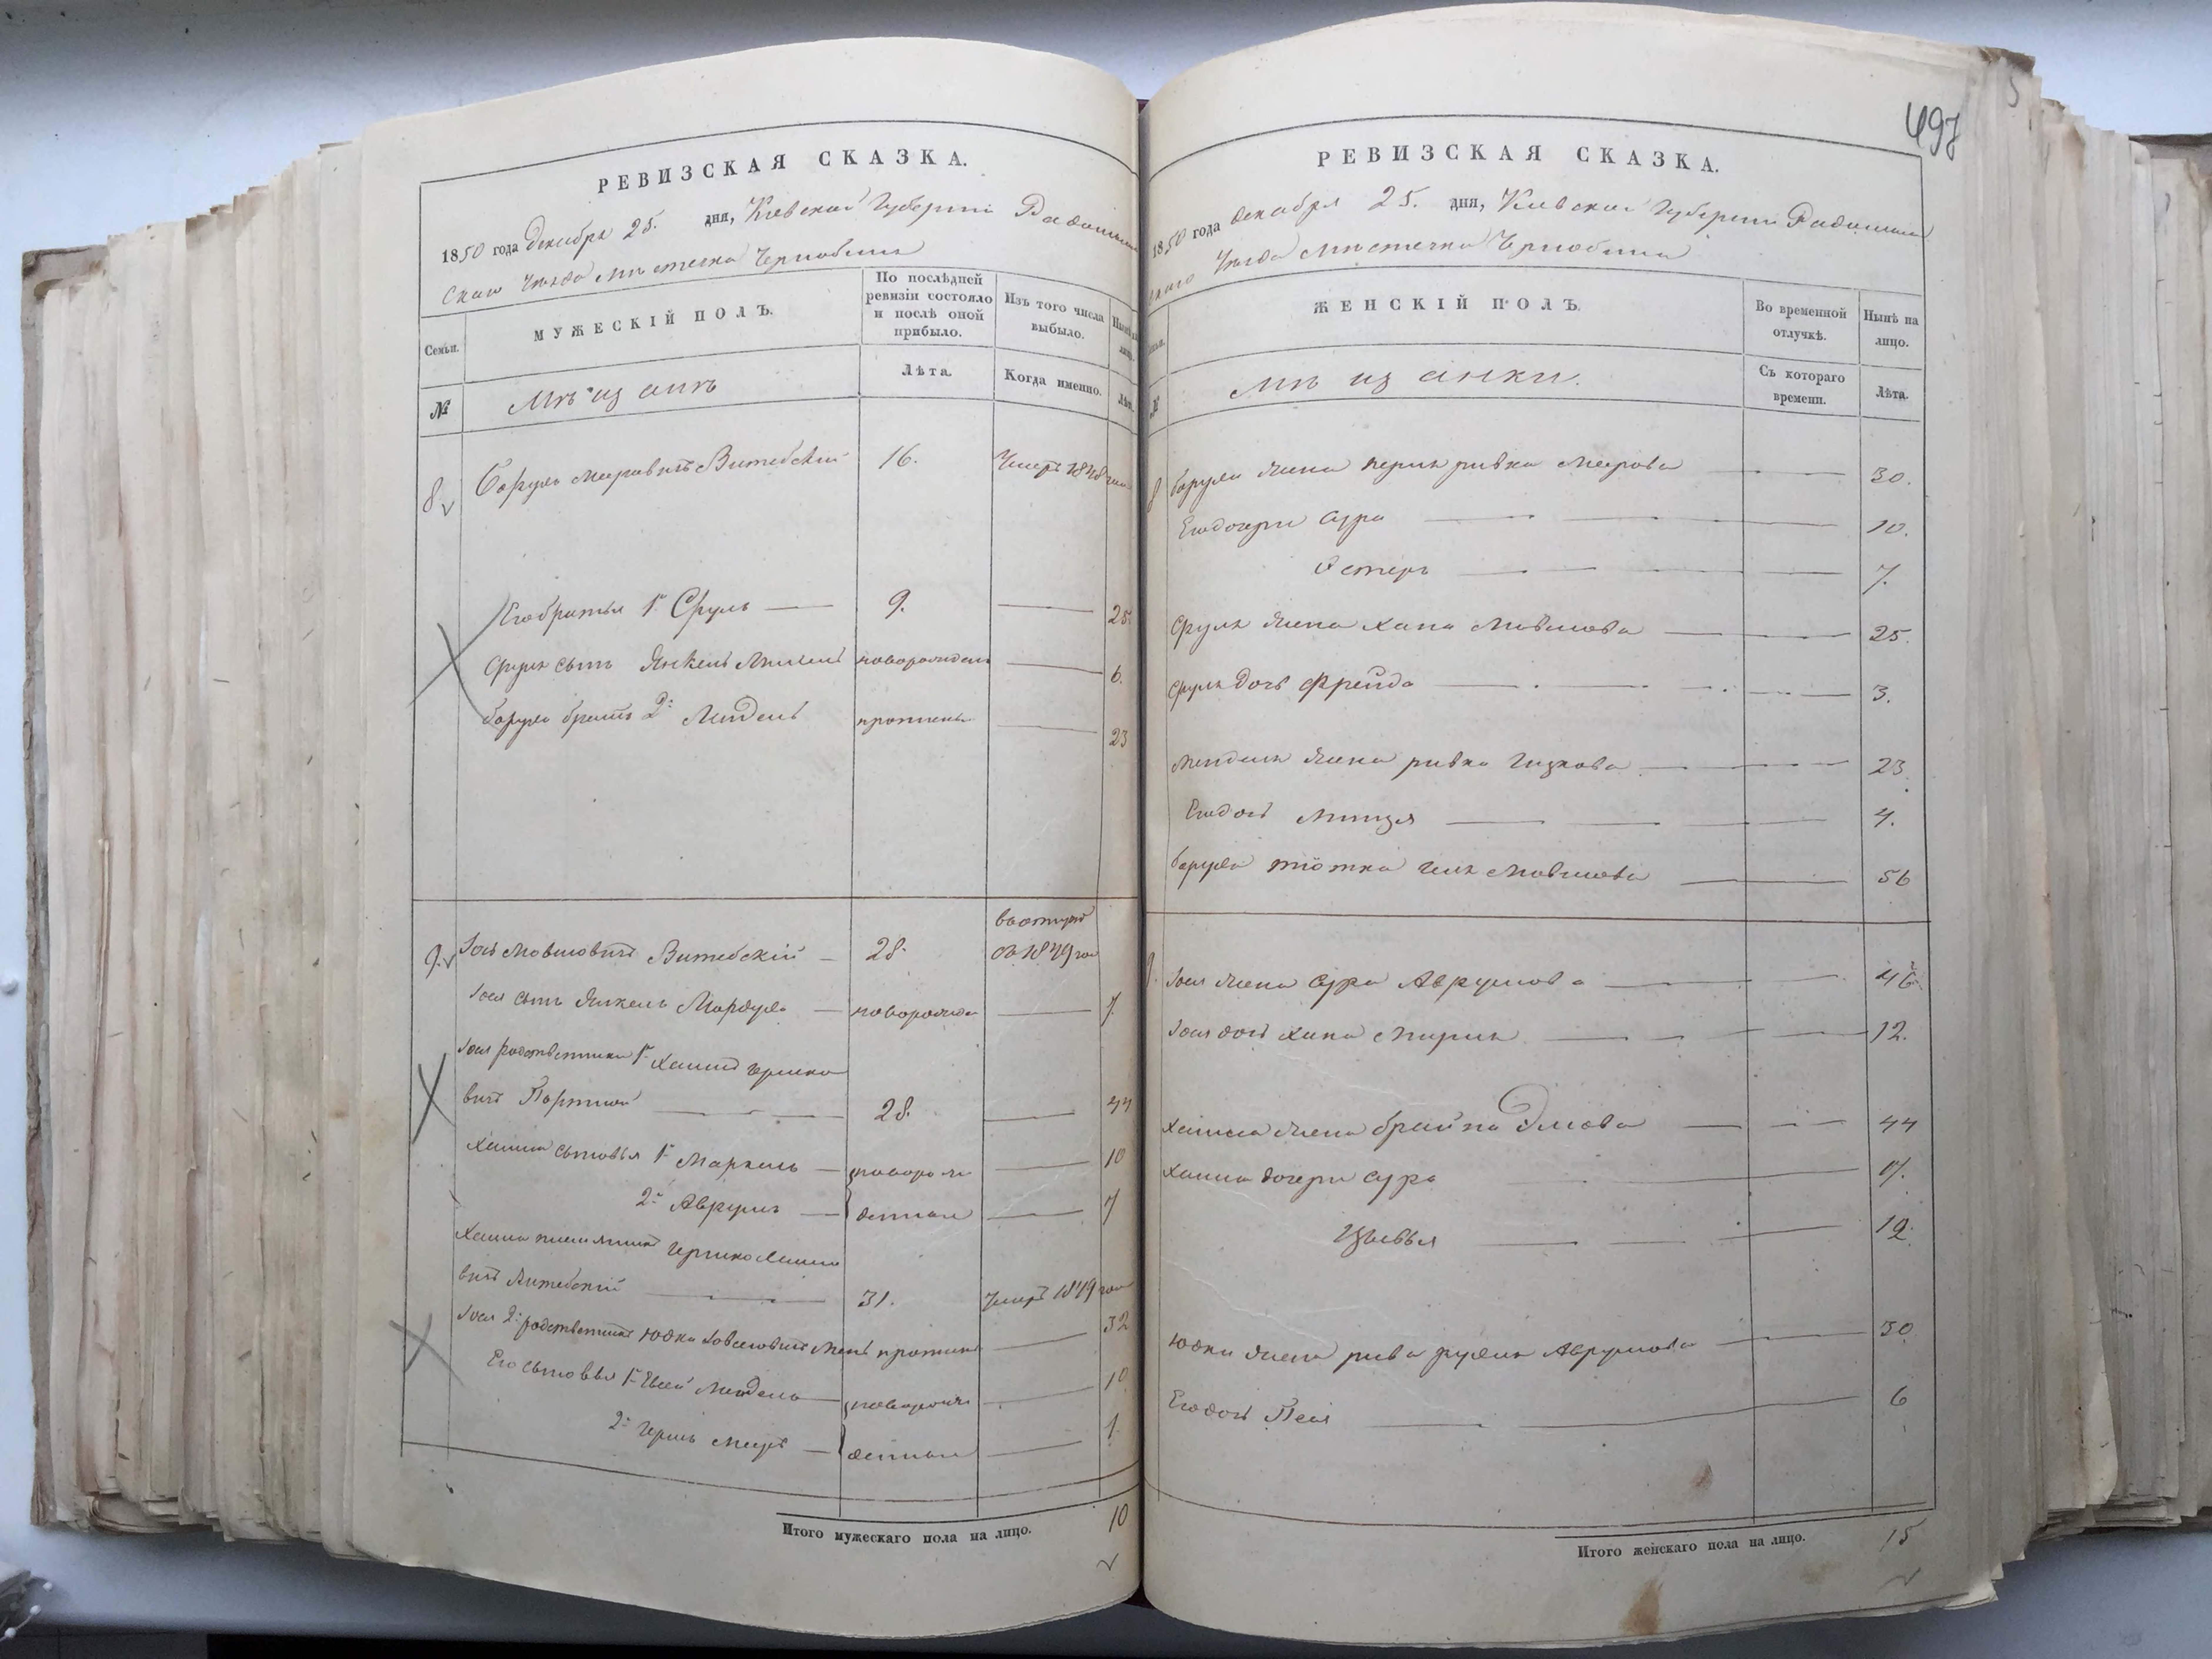 497
РЕВИЗСКАЯ СКАЗКА.
1850 года декабря 25. дня, Киевской Губернии Радомысль
скаго Уезда местечка Чернобыля
Семьи.
МУЖЕСКІЙ ПОЛЪ.
По послѣдней ревизіи состояло и послѣ оной прибыло.
Изъ того числа выбыло.
Нынѣ на лицо.
№
Мѣщанъ
Лѣта.
Когда именно.
Лѣта.
8 Борухъ Меировичъ Витебскій 16. Умеръ 1848 года
Его братья 1й Сруль 9. 25.
Сруля сынъ Янкель новорожденъ 6.
Боруха братъ 2й Мендель пропис 23
9. Іось Мовшовичъ Витебскій 28. въ отлуч
съ 1849 года
Іося сынъ Янкель Мордухъ новорожден 7.
Іося родственники 1й Хаимъ Гершко
вичъ Портной 28. 44
Хаима сыновья 1й Маркель новорож 10
2й Аврумъ денные 7
Хаима племянникъ Гершко
вичъ Витебскій 31. Умеръ 1849 года
Іося 2й родственникъ Юдка Іовсеовичъ пропис 32
Его сыновья 1й Евсей Мендель новорож 10
2й Герш Меер денные 1
Итого мужескаго пола на лицо. 10
РЕВИЗСКАЯ СКАЗКА.
1850 года декабря 25. дня, Киевской Губернии Радомысль
скаго Уезда местечка Чернобыля
Семьи.
ЖЕНСКІЙ ПОЛЪ.
Во временной отлучкѣ.
Нынѣ на лицо.
№
Мѣщанки.
Съ котораго времени.
Лѣта.
8 Боруха жена Перля Ривка Меерова 30.
Его дочери Сура 10.
Эстеръ 7.
Сруля жена Хана Мовшова 25.
Сруля дочь Фрейда 3.
Менделя жена Ривка Ицкова 23
Его дочь 4.
Боруха тіотка Мовшова 56
9. Іося жена Сура Аврумова 46
Іося дочь Хана Мирия 12.
Хаима жена Брайна 44
Хаима дочери Сура 17.
Цывья 12.
Юдки жена Рива Рухля Аврумова 30
Его дочь Песя 6
Итого женскаго пола на лицо. 15